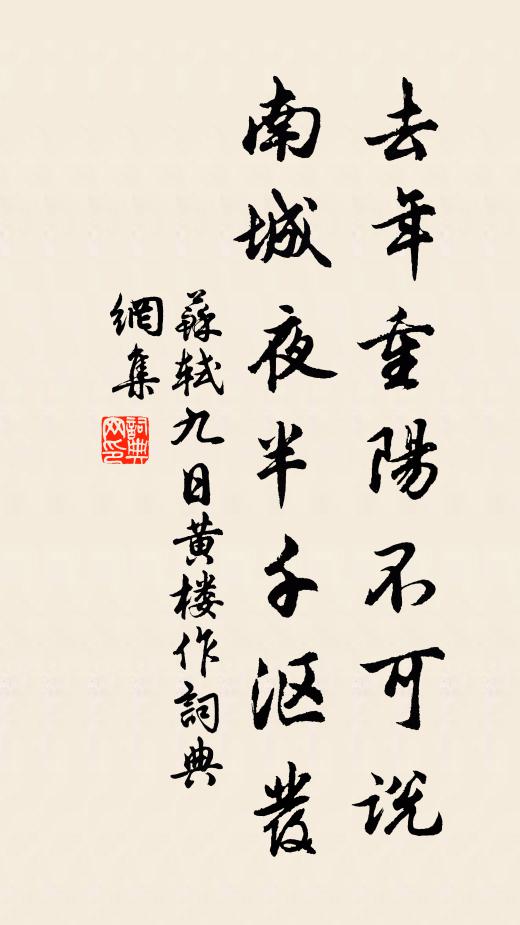 去年重陽不可説
南城夜半千漚發
蘇軾九日黄楼作詞典
網集
詞典
网印